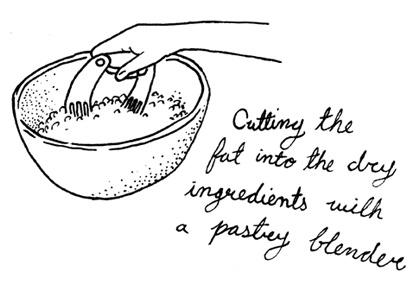 Cutting the
fat into the dry
ingredients with
a pastry blender